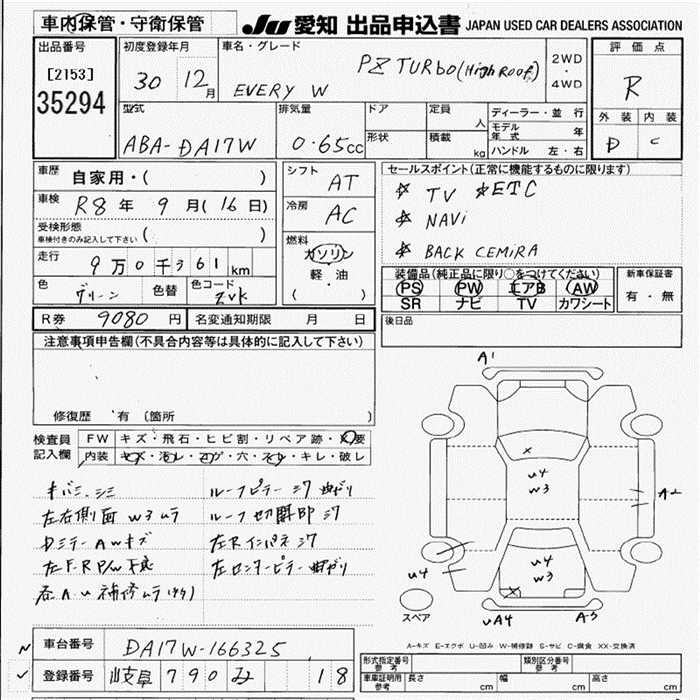 車内保管・守衛保管
JU 愛知 出品申込書 JAPAN USED CAR DEALERS ASSOCIATION
出品番号
[2153]
35294
初度登録年月
30 12月
車名・グレード
EVERY W PZ TURBO (High Roof)
2WD・4WD
評価点
R
外装 内装
D C
型式
ABA-DA17W
排気量
0.65cc
ドア
形状
定員 人
積載 kg
ディーラー・並行
モデル年式 年
ハンドル 左・右
車歴 自家用・( )
車検 R8年 9月(16日)
受検形態
車検付きのみ記入して下さい ( )
走行 9万0千361km
色 グリーン 色替 色コード ZVK
シフト AT
冷房 AC
燃料 ガソリン
軽・油
( )
セールスポイント(正常に機能するものに限ります)
☆ TV ☆ETC
☆ NAVi
☆ BACK CEMIRA
装備品(純正品に限り○をつけてください)
PS PW エアB AW
SR ナビ TV カワシート
新車保証書
有・無
R券 9080円 名変通知期限 月 日
後日品
注意事項申告欄(不具合内容等は具体的に記入して下さい)
修復歴 有 (箇所 )
検査員記入欄
FW キズ・飛石・ヒビ割・リペア跡・X要
内装 キズ・汚レ・コゲ・穴・ヌレ・キレ・破レ
キバミ、シミ
左右側面 W3ムラ
DミラーAWキズ
左F.R P/W不良
ルーフピラー シワ 曲がり
左RインパネシワR
A1
U4
W3
A2
U4
U4
W3
UA4 A3
スペア
A-キズ E-エクボ U-凹み W-補修跡 S-サビ C-腐食 XX-交換済
車台番号 DA17W-166325
登録番号 岐阜 790 み 18
形式指定番号 参考
類別区分番号 参考
車庫証明用 参考
長さ cm
幅 cm
高さ cm